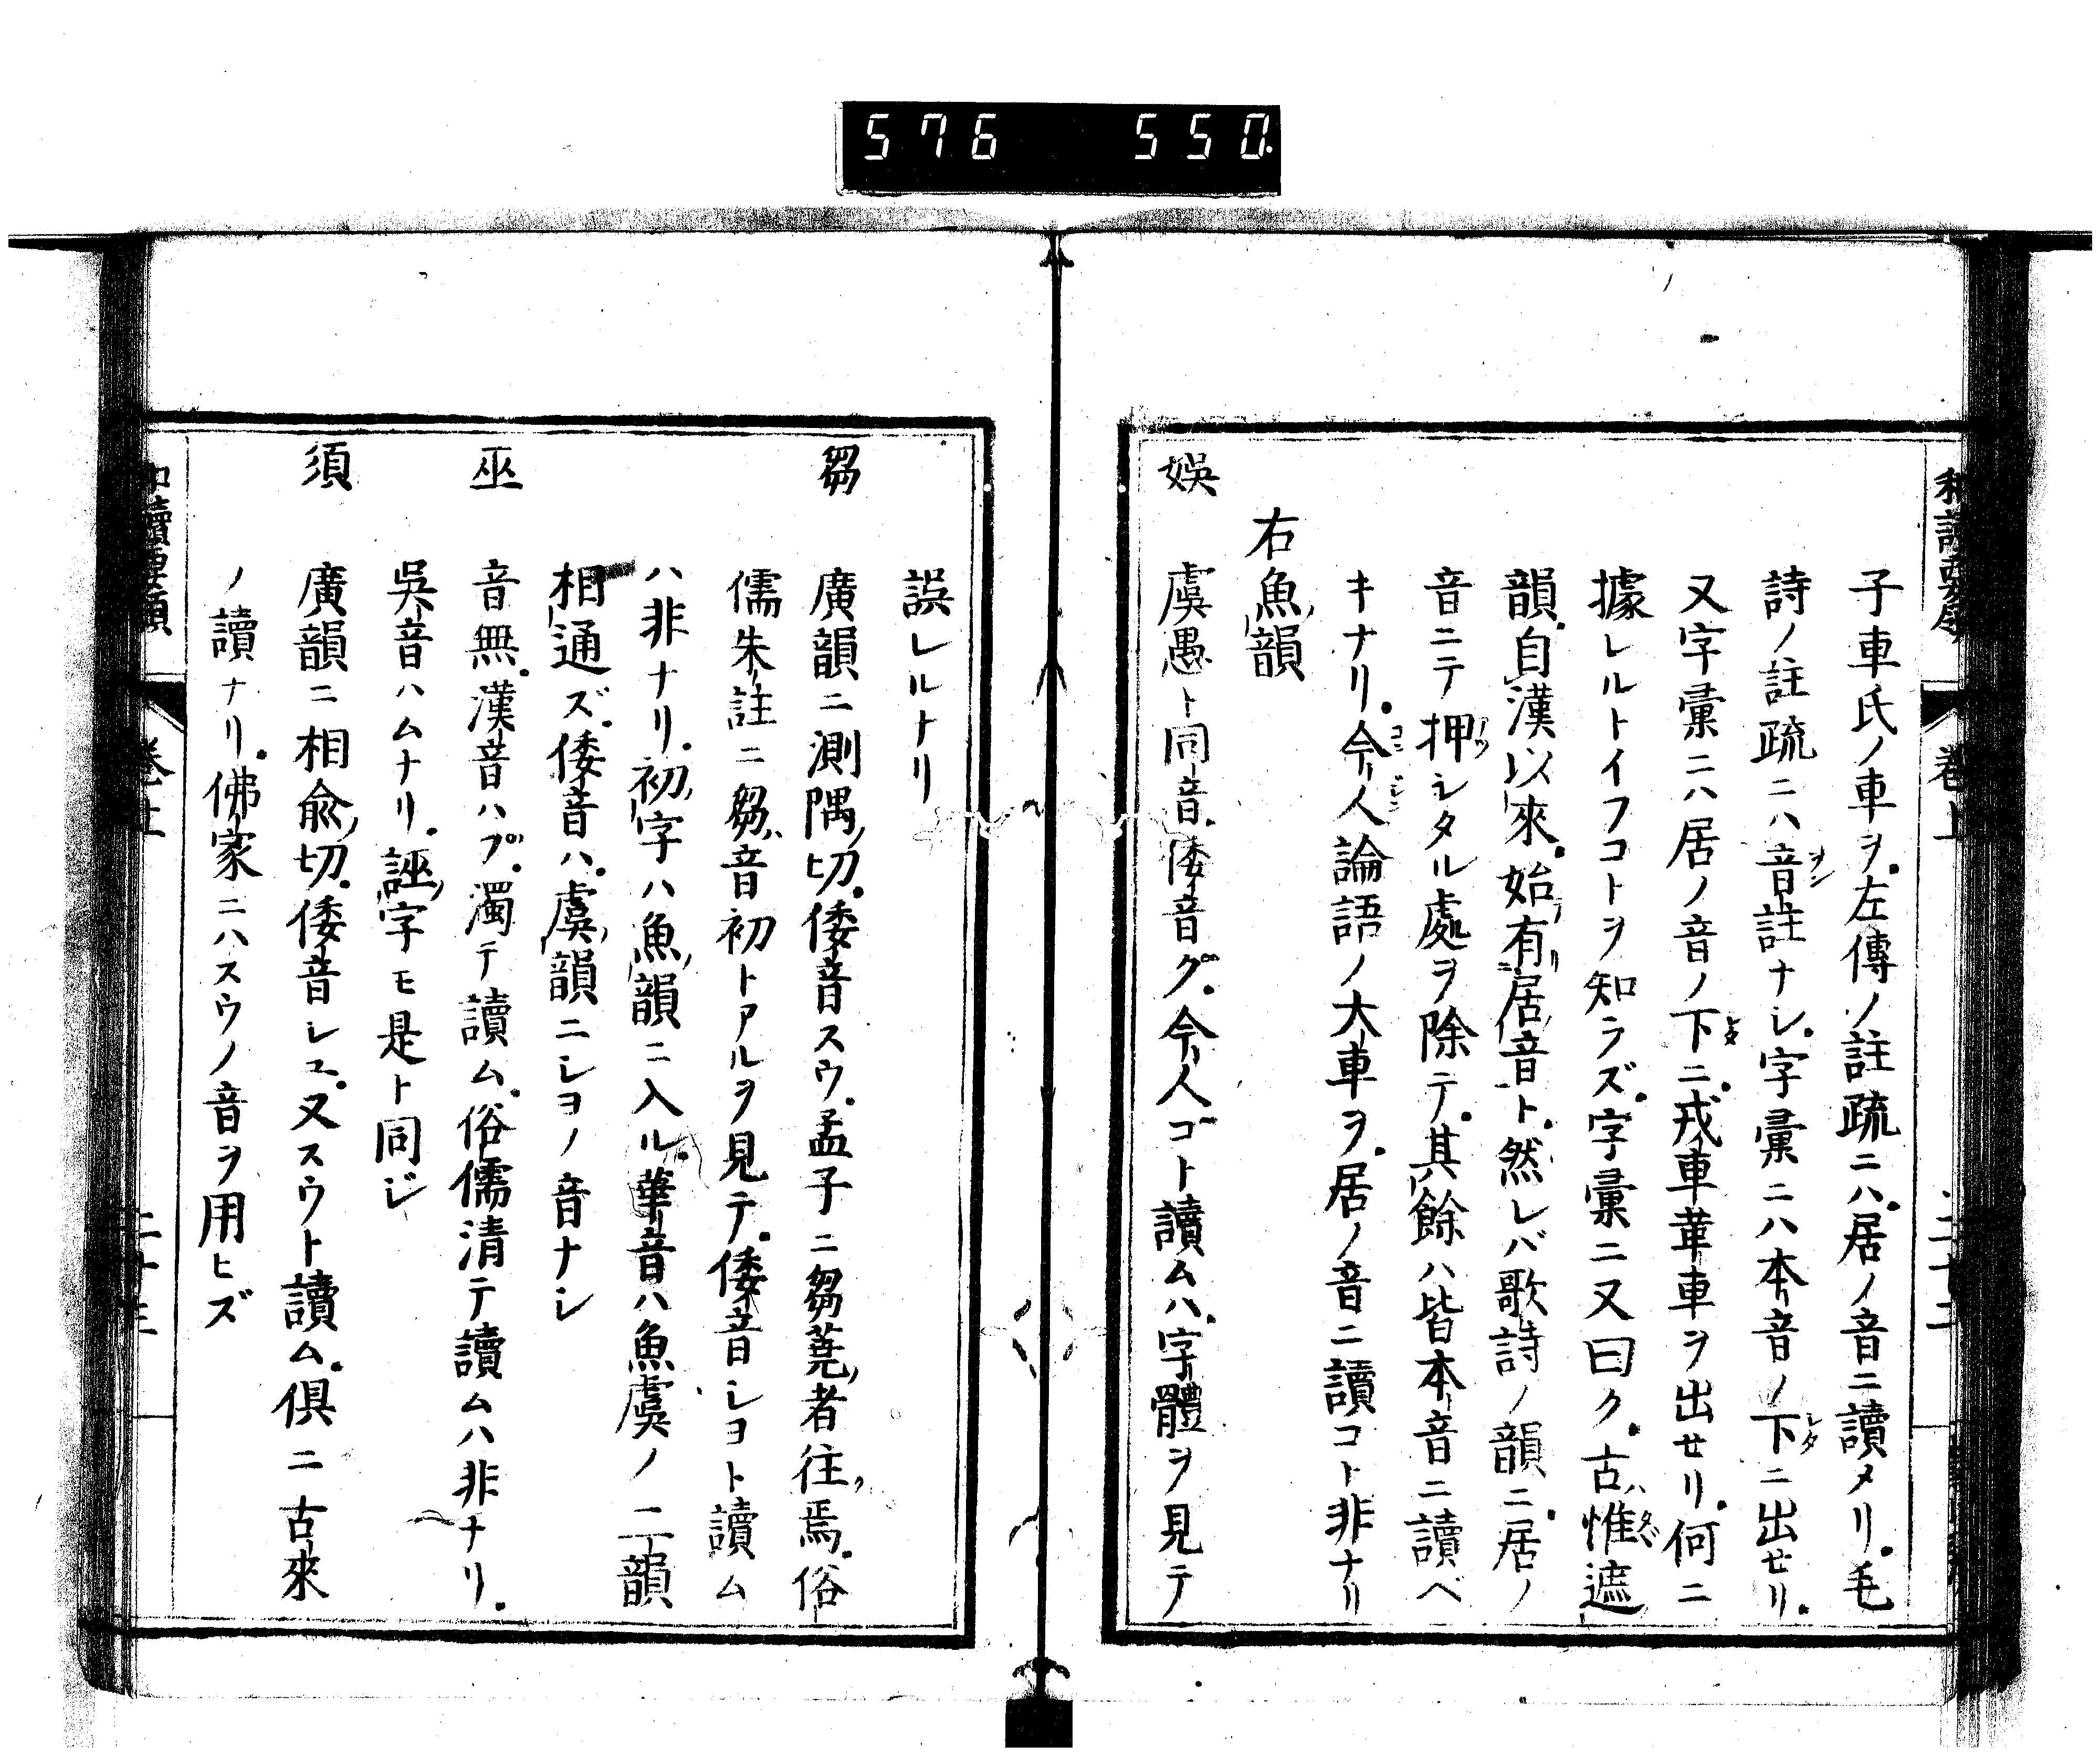 576 550
子車氏ノ車ヲ。左傳ノ註疏ニハ。居ノ音ニ讀タリ。毛
詩ノ註疏ニハ音註ナシ。字彙ニハ本音ノ下ニ出セリ。
又字彙ニハ居ノ音ノ下ニ。戎車革車ヲ出セリ。何ニ
據レルトイフコトヲ知ラズ。字彙ニ又曰ク。古惟遮
韻。自漢以來。始有居音ト。然レバ歌詩ノ韻ニ。居ノ
音ニテ押シタル處ヲ除テ。其餘ハ皆本音ニ讀ベ
キナリ。今ノ人論語ノ大車ヲ。居ノ音ニ讀コト非ナリ
右魚韻
娯 虞愚ト同音。倭音グ。今人ゴト讀ムハ。字體ヲ見テ
誤レルナリ
芻 廣韻ニ測隅切。倭音スウ。孟子ニ芻蕘者往焉。俗
儒朱註ニ芻音初トアルヲ見テ。倭音シヨト讀ム
ハ非ナリ。初字ハ魚韻ニ入ル。華音ハ魚虞ノ二韻
相通ズ。倭音ハ。虞韻ニシヨノ音ナシ
巫 音無。漢音ハブ。濁テ讀ム。俗儒清テ讀ムハ非ナリ。
吳音ハムナリ。誣字モ是ト同ジ
須 廣韻ニ相兪切。倭音シユ。又スウト讀ム。倶ニ古來
ノ讀ナリ。佛家ニハスウノ音ヲ用ヒズ